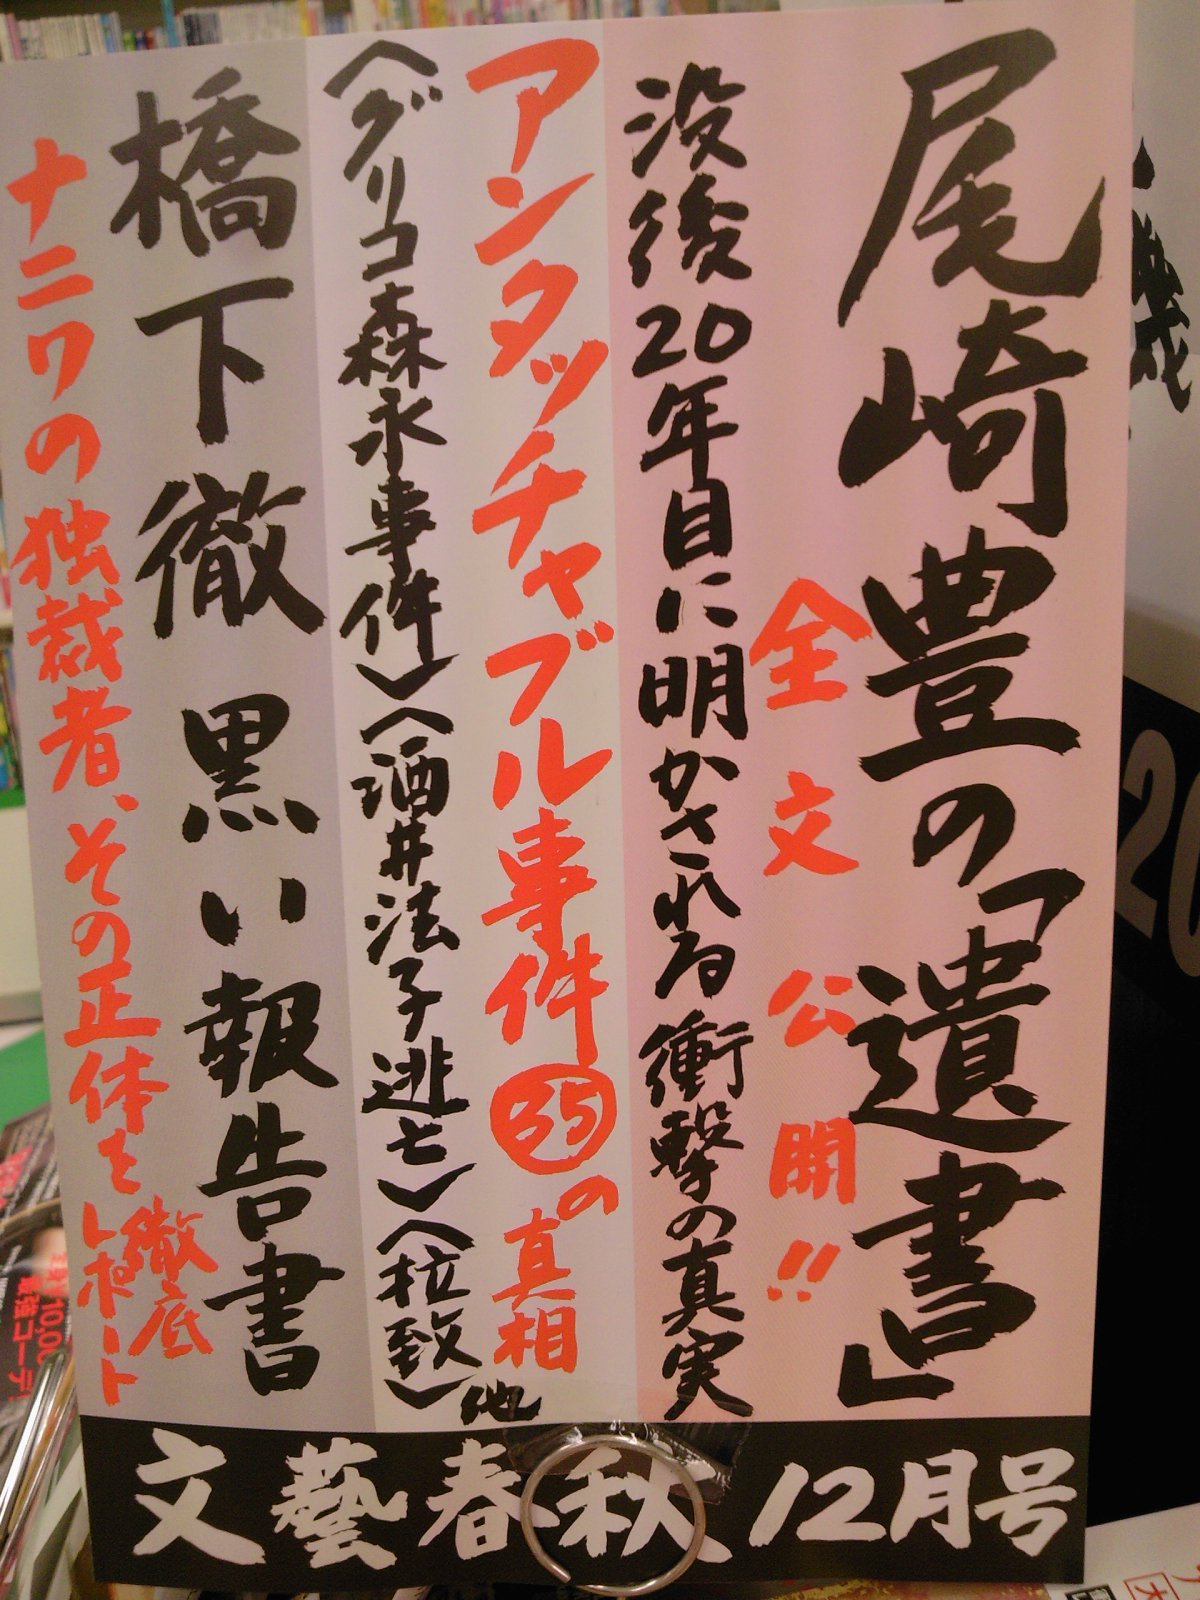 尾崎豊の「遺書」
全文公開!!
没後20年目に明かされる衝撃の真実
アンタッチャブル事件㉟の真相
〈グリコ森永事件〉〈酒井法子逃亡〉〈拉致〉他
橋下徹 黒い報告書
ナニワの独裁者、その正体を徹底レポート
文藝春秋 12月号